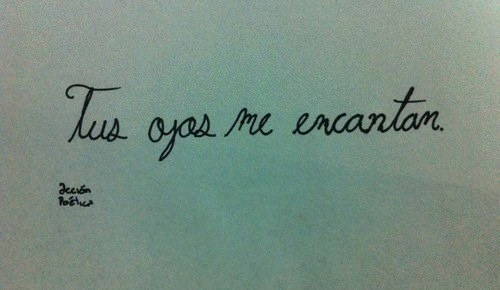 Tus ojos me encantan.
Acción
Poética